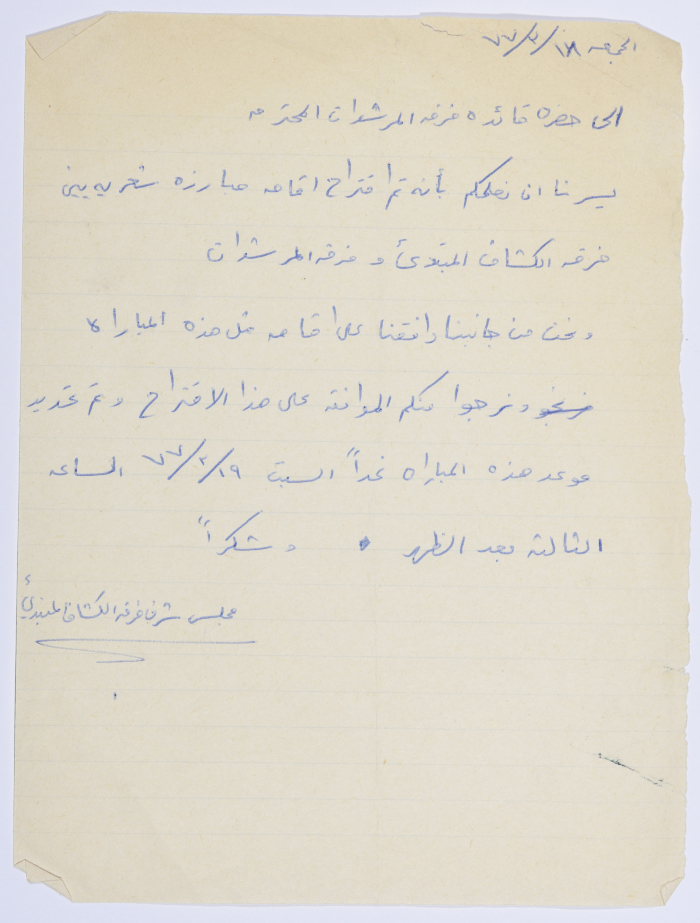 الجمعه ١٨/٣/٧٧
الى حضره قائده فرقه المرشدات المحترمه
يسرنا ان نعلمكم بأنه تم اقتراح اقامه مبارزه شعريه بين
فرقه الكشاف المبتدئ و فرقه المرشدات
ونحن من جانبنا وافقنا على اقامه مثل هذه المباراه
ونرجوا منكم الموافقه على هذا الاقتراح وتم تحديد
موعد هذه المباراه غداً السبت ١٩/٣/٧٧ الساعه
الثالثه بعد الظهر . و شكراً
مجلس شرف فرقه الكشاف المبتدئ